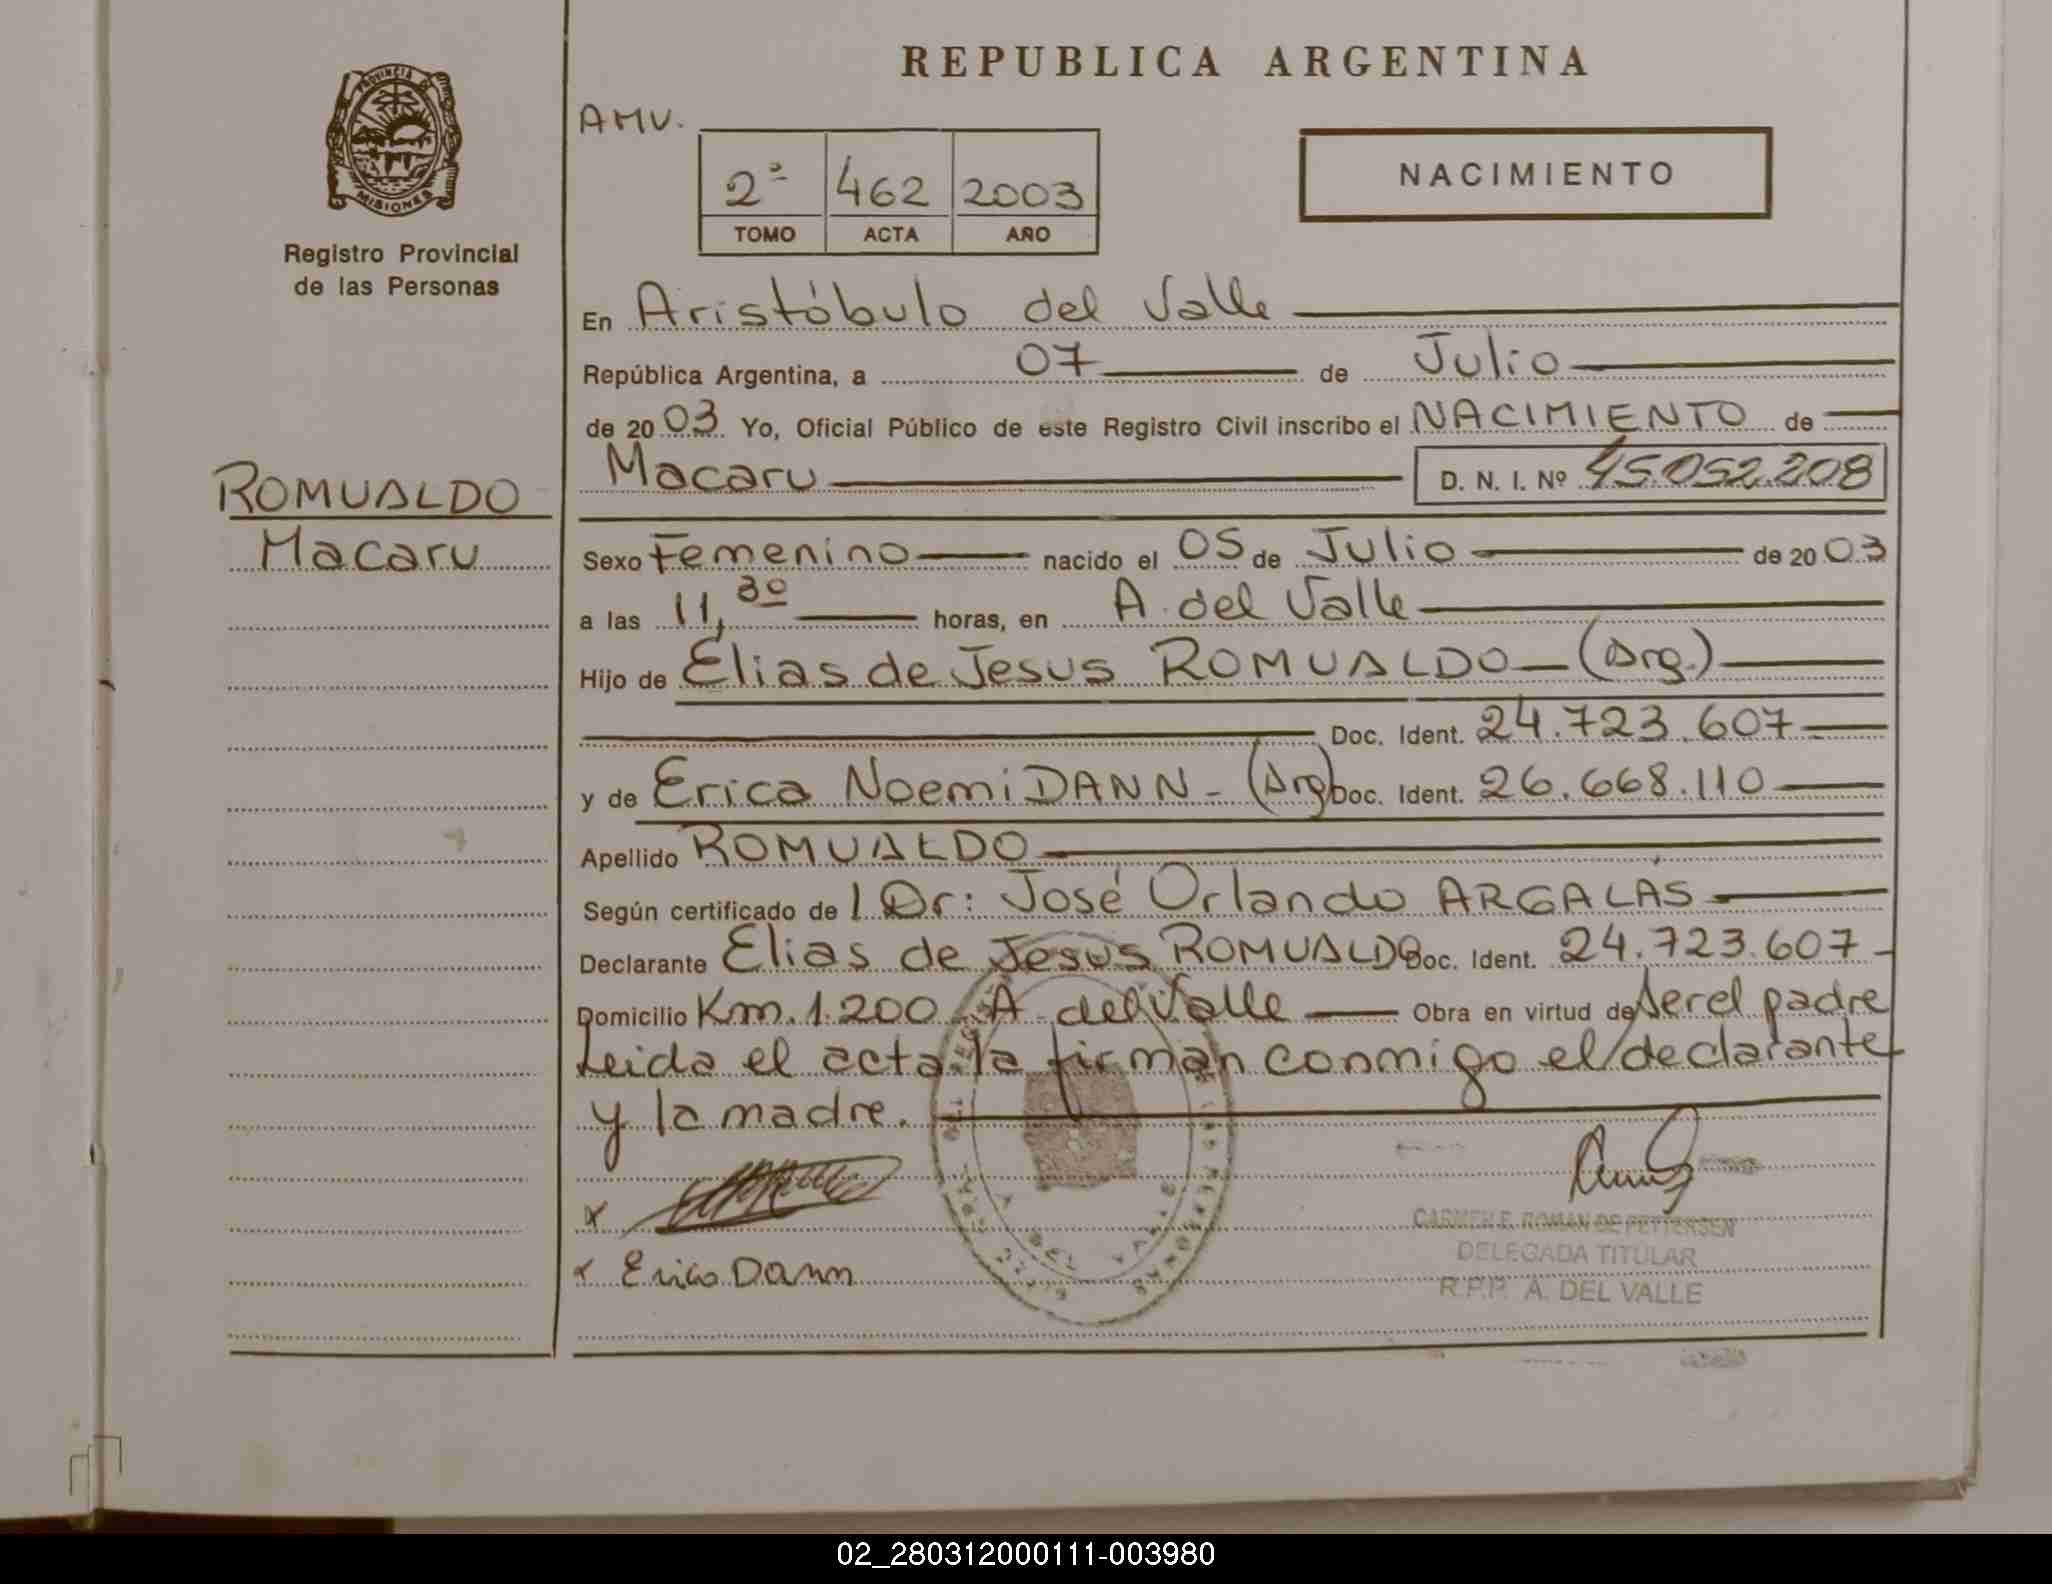 REPUBLICA ARGENTINA
PROVINCIA DE MISIONES
Registro Provincial
de las Personas
AMV.
2ª 462 2003
TOMO ACTA AÑO
NACIMIENTO
En Aristóbulo del Valle
República Argentina, a 07 de Julio
de 2003 Yo, Oficial Público de este Registro Civil inscribo el NACIMIENTO de
Macaru D. N. I. Nº 45.052.208
ROMUALDO
Macaru
Sexo Femenino nacido el 05 de Julio de 2003
a las 11,30 horas, en A. del Valle
Hijo de Elias de Jesus ROMUALDO (Arg.)
Doc. Ident. 24.723.607
y de Erica Noemi DANN - (Arg) Doc. Ident. 26.668.110
Apellido ROMUALDO
Según certificado de l Dr: José Orlando ARGALÁS
Declarante Elias de Jesus ROMUALDO Doc. Ident. 24.723.607
Domicilio Km. 1.200 A. del Valle Obra en virtud de Ser el padre
Leida el acta la firman conmigo el declarante
y la madre.
x
x Erica Dann
CARMEN E. ROMAN DE PETTERSEN
DELEGADA TITULAR
R.P.P. A. DEL VALLE
02_280312000111-003980